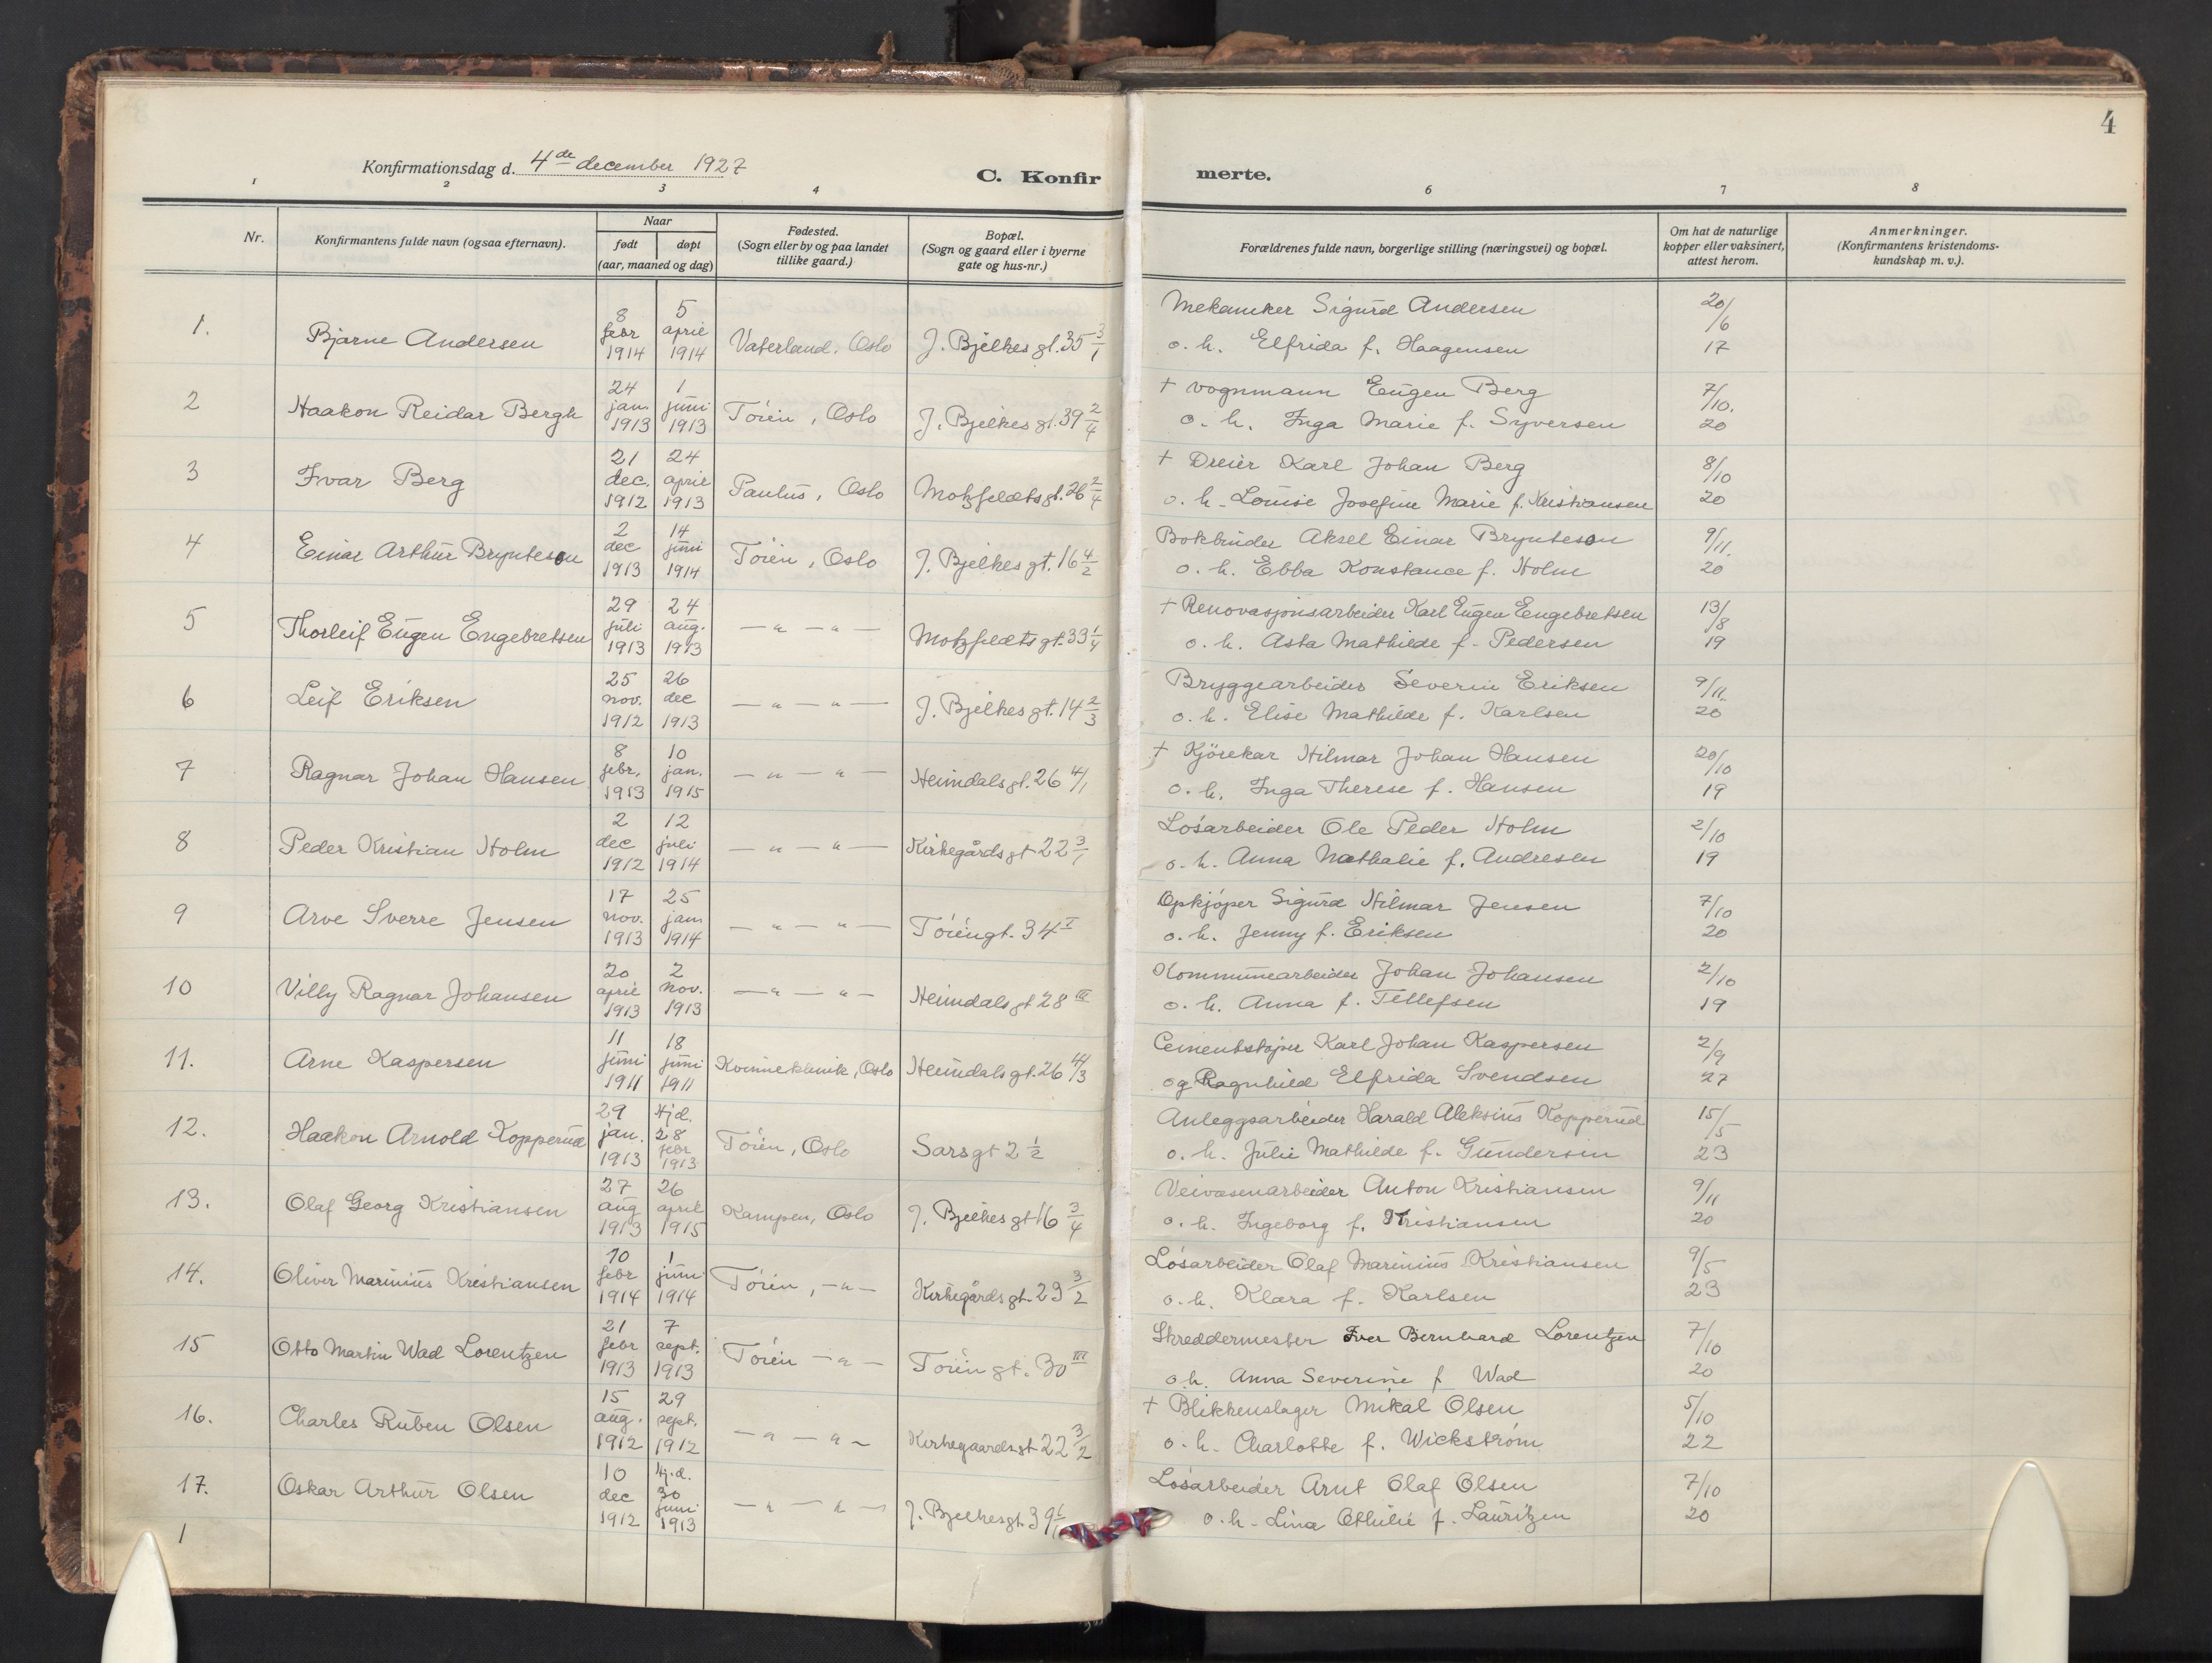 4
Konfirmationsdag d. 4de december 1927
C. Konfirmerte.
1 2 3 4 6 7 8
Nr.
Konfirmantens fulde navn (ogsaa efternavn).
Naar
født døpt
(aar, maaned og dag)
Fødested.
(Sogn eller by og paa landet
tillike gaard.)
Bopæl.
(Sogn og gaard eller i byerne
gate og hus-nr.)
Forældrenes fulde navn, borgerlige stilling (næringsvei) og bopæl.
Om hat de naturlige
kopper eller vaksinert,
attest herom.
Anmerkninger.
(Konfirmantens kristendoms-
kundskap m. v.).
1. Bjarne Andersen 8 febr 1914 5 april 1914 Vaterland, Oslo J. Bjelkes gt. 35 3/1
Mekaniker Sigurd Andersen
o. h. Elfrida f. Haagensen 20/6 17
2 Haakon Reidar Bergh 24 jan 1913 1 juni 1913 Töien, Oslo J. Bjelkes gt. 39 2/4
+ vognmann Eugen Berg
o. h. Inga Marie f. Syversen 7/10. 20
3 Ivar Berg 21 dec. 1912 24 april 1913 Paulus, Oslo Motzfeldts gt. 26 2/4
+ Dreier Karl Johan Berg
o. h. Louise Josefine Marie f. Kristiansen 8/10 20
4 Einar Arthur Brynteson 2 dec 1913 14 juni 1914 Töien, Oslo J. Bjelkes gt. 16 4/2
Bokbinder Aksel Einar Brynteson
o. h. Ebba Konstance f. Holm 9/11. 20
5 Thorleif Eugen Engebretsen 29 juli 1913 24 aug. 1913 — „ — „ — Motzfeldts gt. 33 1/4
+ Renovasjonsarbeider Karl Eugen Engebretsen
o. h. Asta Mathilde f. Pedersen 13/8 19
6 Leif Eriksen 25 nov. 1912 26 dec 1913 — „ — „ — J. Bjelkes gt. 14 2/3
Bryggearbeider Severin Eriksen
o. h. Elise Mathilde f. Karlsen 9/11. 20
7 Ragnar Johan Hansen 8 febr. 1913 10 jan. 1915 — „ — „ — Heimdals gt. 26 4/1
+ Kjörekar Hilmar Johan Hansen
o. h. Inga Therese f. Hansen 20/10 19
8 Peder Kristian Holm 2 dec 1912 12 juli 1914 — „ — „ — Kirkegårds gt 22 3/1
Lösarbeider Ole Peder Holm
o. h. Anna Nathalie f. Andresen 2/10 19
9 Arve Sverre Jensen 17 nov. 1913 25 jan 1914 — „ — „ — Töiengt. 34 I
Opkjöper Sigurd Hilmar Jensen
o. h. Jenny f. Eriksen 7/10 20
10 Villy Ragnar Johansen 20 april 1913 2 nov. 1913 — „ — „ — Heimdals gt 28 III
Kommunearbeider Johan Johansen
o. h. Anna f. Tellefsen 2/10 19
11. Arne Kaspersen 11 juni 1911 18 juni 1911 Kvinneklinik, Oslo Heimdals gt. 26 4/3
Cementstöper Karl Johan Kaspersen
og Ragnhild Elfrida Svendsen 2/9 27
12. Haakon Arnold Kopperud 29 jan. 1913 Hjd. 28 febr 1913 Töien, Oslo Sars gt 2 1/2
Anleggsarbeider Harald Aleksius Kopperud
o. h. Julie Mathilde f. Gundersen 15/5 23
13. Olaf Georg Kristiansen 27 aug 1913 26 april 1915 Kampen, Oslo J. Bjelkes gt 16 3/4
Veivæsenarbeider Anton Kristiansen
o. h. Ingeborg f. Kristiansen 9/11 20
14. Oliver Marinius Kristiansen 10 febr 1914 1 juni 1914 Töien, — „ — Kirkegårds gt. 23 3/2
Lösarbeider Olaf Marinius Kristiansen
o. h. Klara f. Karlsen 9/5 23
15 Otto Martin Wad Lorentzen 21 febr 1913 7 sept. 1913 Töien — „ — Töien gt. 30 III
Skreddermester Iver Bernhard Lorentzen
o. h. Anna Severine f Wad 7/10 20
16. Charles Ruben Olsen 15 aug. 1912 29 sept. 1912 — „ — „ — Kirkegaards gt 22 3/2
+ Blikkenslager Mikal Olsen
o. h. Charlotte f. Wickström 5/10 22
17. Oskar Arthur Olsen 10 dec 1912 Hj.d. 30 juni 1913 — „ — „ — J. Bjelkes gt. 39
Lösarbeider Arnt Olaf Olsen
o. h. Lina Othilie f. Lauritzen 7/10 20
1